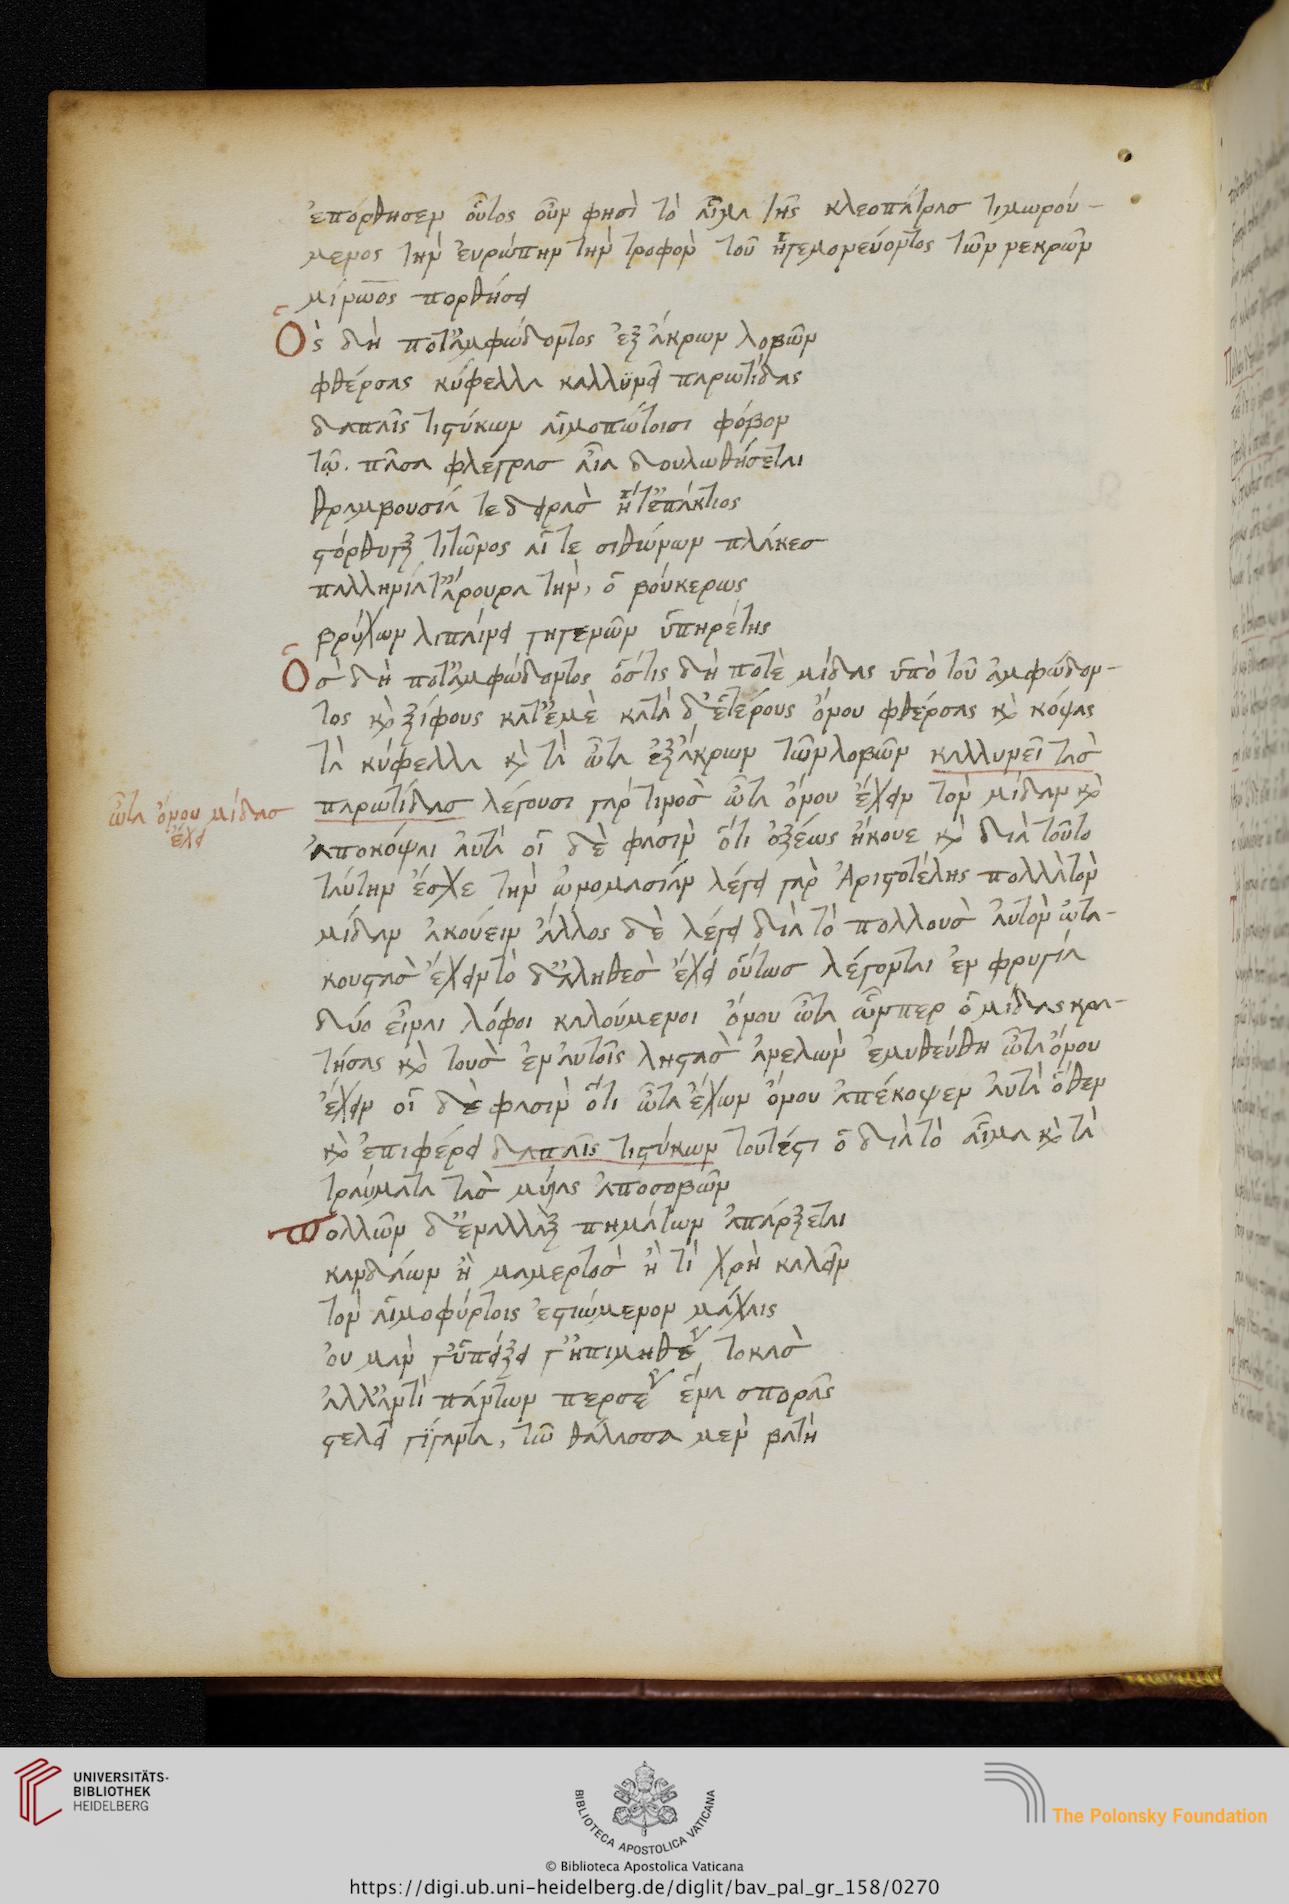 ἐπόρθησεν οὗτος οὖν φησὶ τὸ αἷμα τῆς κλεοπάτρας τιμωρού-
μενος τὴν ἐυρώπην τὴν τροφὸν τοῦ ἡγεμονεύοντος τῶν νεκρῶν
μίνωος πορθήσει
Ὃς δὴ ποτ' ἀμφώδοντος ἐξ ἄκρων λοβῶν
φθέρσας κύφελλα καλλϋνεῖ παρωτίδας
δαπαῖς τιτύσκων αἱμοπώτοισι φόβον
τῷ. πᾶσα φλέγρας αἶα δουλωθήσεται
θραμβουσία τε δειρὰς ἥτ' ἐπάκτιος
στόρθυγξ τίτωνος αἵ τε σιθώνων πλάκες
παλληνία τ' ἄρουρα τὴν, ὁ βούκερως
βρύχων λιπαίνει γηγενῶν ὑπηρέτης
Ὃς δὴ ποτ' ἀμφώδοντος ὅστις δὴ ποτὲ μίδας ὑπὸ τοῦ ἀμφώδον-
τος κὶ ξίφους κατ' ἐμὲ κατὰ δ' ἑτέρους ὄνου φθέρσας κὶ κόψας
τὰ κύφελλα κὶ τὰ ὦτα ἐξ ἄκρων τῶν λοβῶν καλλυνεῖ τὰς
παρωτίδας λέγουσι γάρ τινὸς ὦτα ὄνου ἔχειν τὸν μίδαν κὶ
ἀποκόψαι ἀυτά οἱ δὲ φασὶν ὅτι ὀξέως ἤκουε κὶ διὰ τοῦτο
ταύτην ἔσχε τὴν ὠνομασίαν λέγει γὰρ Ἀριστοτέλης πολλὰ τὸν
μίδαν ἀκούειν ἄλλος δὲ λέγει διὰ τὸ πολλοὺς ἀυτὸν ὠτα-
κουστὰς ἔχειν τὸ δ' ἀληθὲς ἔχει οὕτως λέγονται ἐν φρυγία
δύο εἶναι λόφοι καλούμενοι ὄνου ὦτα ὧνπερ ὁ μίδας κρα-
τήσας κὶ τοὺς ἐν ἀυτοῖς ληστὰς ἀνελὼν ἐμυθεύθη ὦτα ὄνου
ἔχειν οἱ δὲ φασὶν ὅτι ὦτα ἔχων ὄνου ἀπέκοψεν ἀυτὰ ὅθεν
κὶ ἐπιφέρει δαπαῖς τιτύσκων τουτέστι ὁ διὰ τὸ αἷμα κὶ τὰ
τραύματα τὰς μυίας ἀποσοβῶν
Πολλῶν δ' ἐναλλὰξ πημάτων ἀπάρξεται
κανδάων ἢ μαμερτὸς ἢ τί χρὴ καλεῖν
τὸν αἱμοφύρτοις ἑστιώμενον μάχαις
ὀυ μὰν γ' ὑπείξει γ' ἠπιμηθέως τοκὰς
ἀλλ' ἀντὶ πάντων περσέως ἕνα σπορᾶς
στελεῖ γίγαντα, τῶ θάλασσα μὲν βατὴ
ὦτα ὄνου μίδας
ἔχει
UNIVERSITÄTS-
BIBLIOTHEK
HEIDELBERG
BIBLIOTECA APOSTOLICA VATICANA
The Polonsky Foundation
© Biblioteca Apostolica Vaticana
https://digi.ub.uni-heidelberg.de/diglit/bav_pal_gr_158/0270